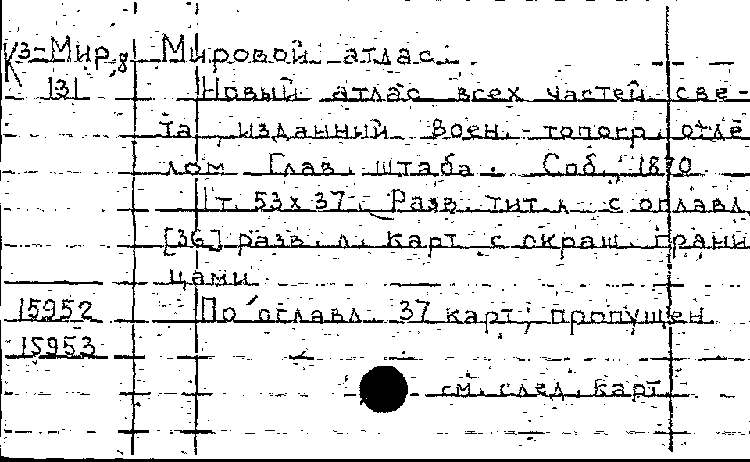 К3-Мир,8 Мировой атлас.
131 Новый атлас всех частей све-
та, изданный Воен.-топогр. отде
лом Глав. штаба. Спб., 1870
1 т. 53x37. Разв. тит. л. с оглавл.
[36] разв. л. карт с окраш. грани
цами
15952 По оглавл. 37 карт; пропущен
15953
см. след. карт